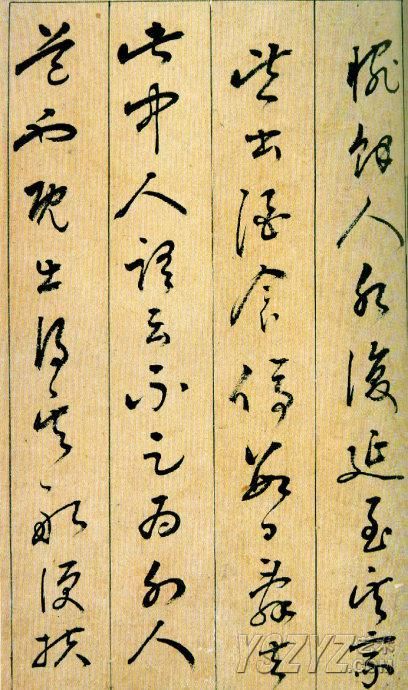 惋餘人各復延至其家
皆出酒食停數日辭去
此中人語云不足為外人
道也既出得其船便扶
YSZYZ